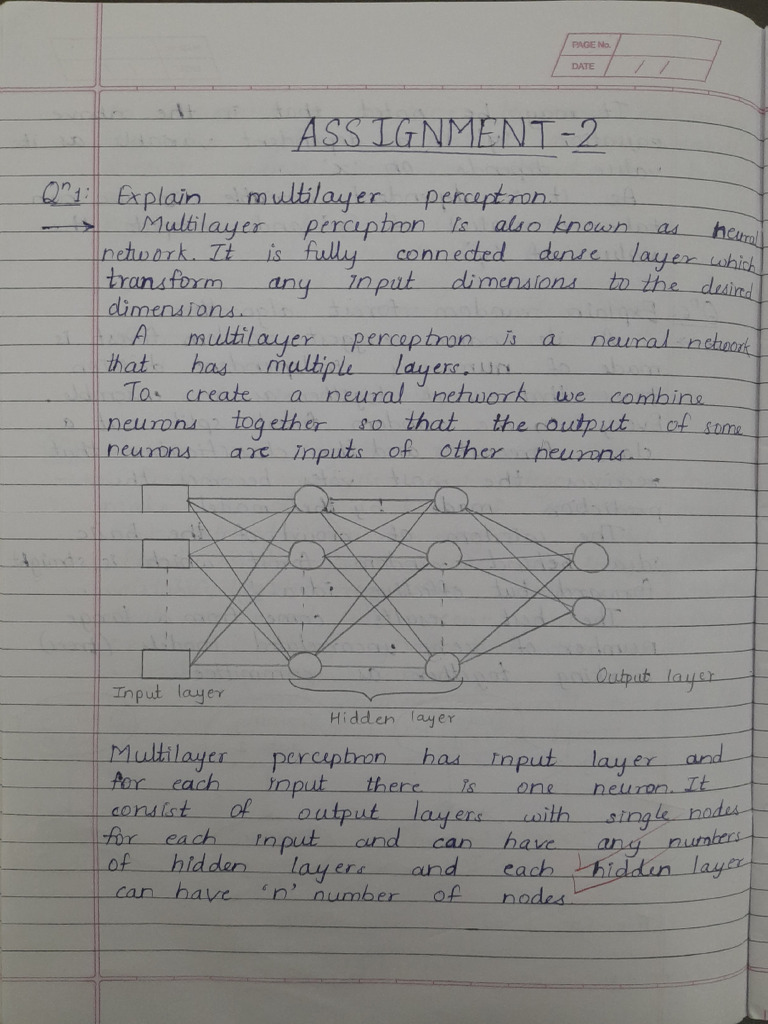 PAGE No.
DATE / /
ASSIGNMENT-2
Qn 1: Explain multilayer perceptron.
→ Multilayer perceptron is also known as neural
network. It is fully connected dense layer which
transform any input dimensions to the desired
dimensions.
A multilayer perceptron is a neural network
that has multiple layers.
To create a neural network we combine
neurons together so that the output of some
neurons are inputs of other neurons.
Input layer
Output layer
Hidden layer
Multilayer perceptron has input layer and
for each input there is one neuron. It
consist of output layers with single nodes
for each input and can have any numbers
of hidden layers and each hidden layer
can have 'n' number of nodes